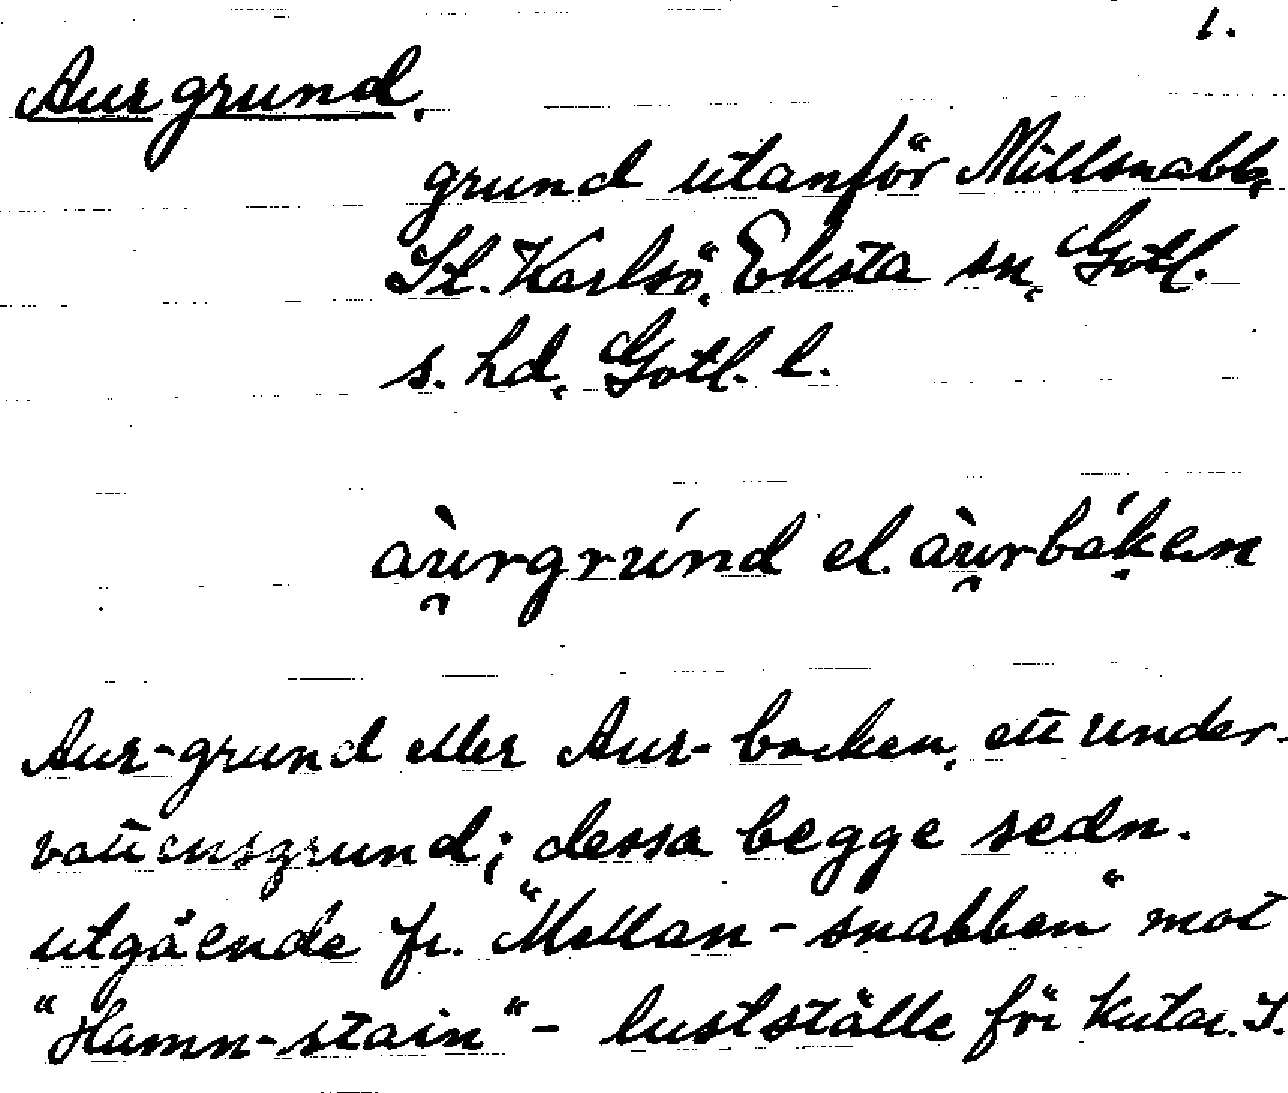 1.
Aurgrund.
grund utanför Millsnabb,
St. Karlsö, Eksta sn, Gotl.
s. hd, Gotl. l.
àu̯rgrúnd el. àu̯rbák̇en
Aur-grund eller Aur-backen, ett under-
vattensgrund; dessa begge sedn.
utgående fr. "Mellan-snabben" mot
"Hamn-stain" - lustställe för kutar. I.